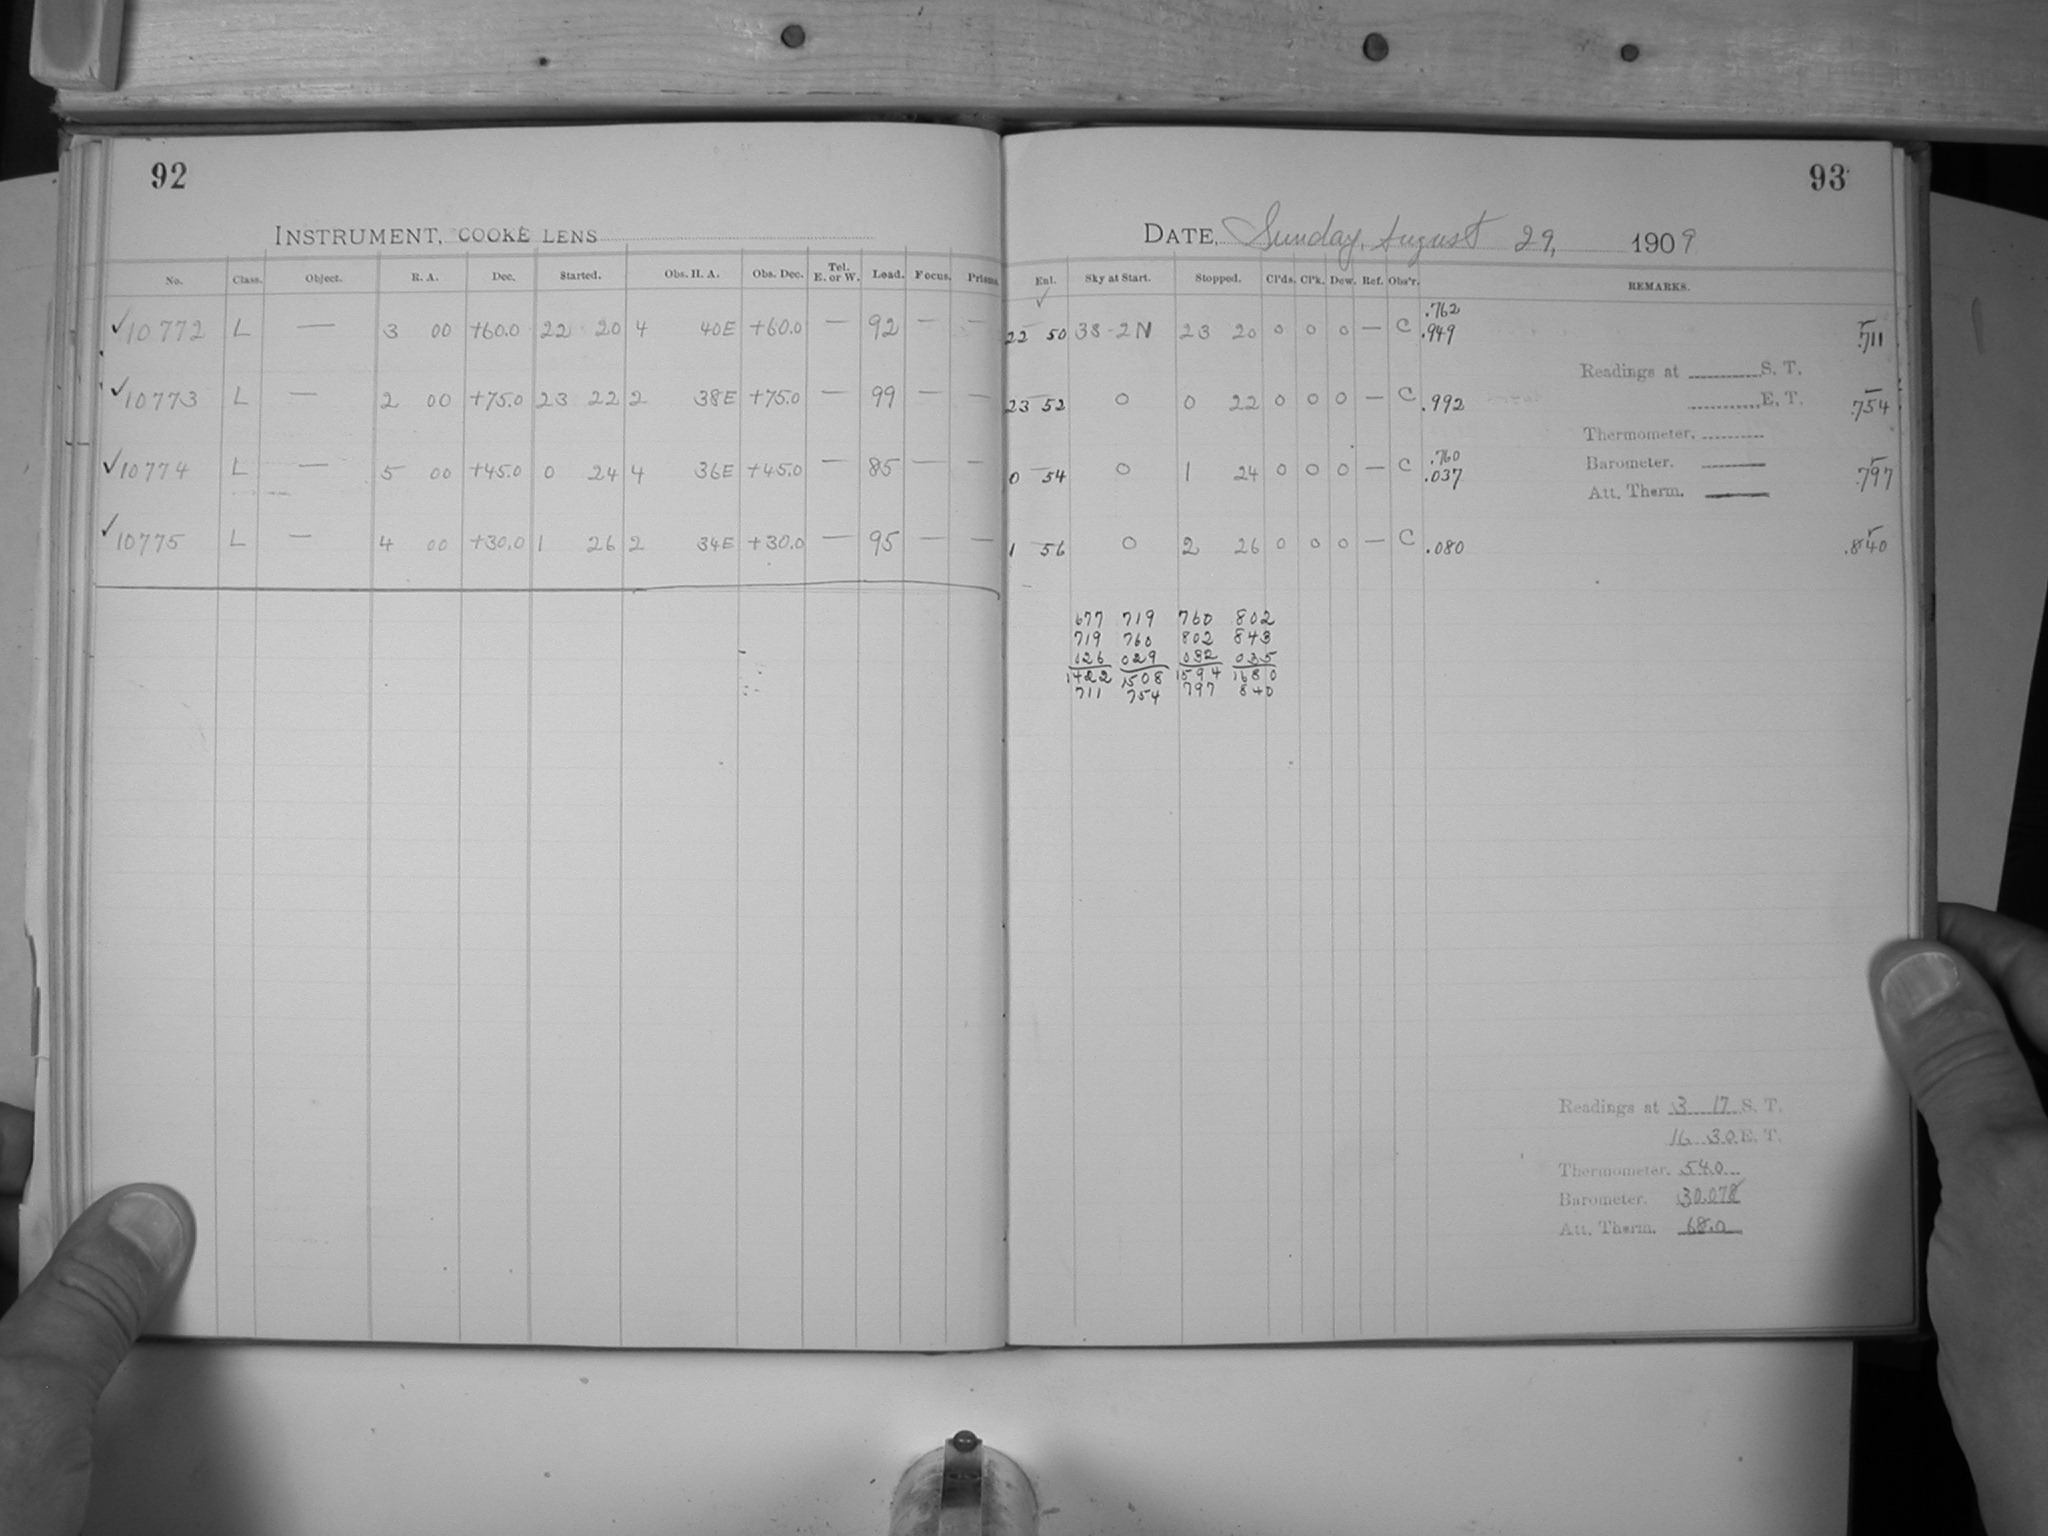 92
INSTRUMENT, COOKE LENS
No. Class. Object. R. A. Dec. Started. Obs. H. A. Obs. Dec. Tel. E. or W. Load. Focus. Prisms.
✓10772 L — 3 00 +60.0 22 20 4 40E +60.0 — 92 — —
✓10773 L — 2 00 +75.0 23 22 2 38E +75.0 — 99 — —
✓10774 L — 5 00 +45.0 0 24 4 36E +45.0 — 85 — —
✓10775 L — 4 00 +30.0 1 26 2 34E +30.0 — 95 — —
93
DATE, Sunday, August 29, 1909
Ent. Sky at Start. Stopped. Cl'ds. Cl'k. Dew. Ref. Obs'r. REMARKS.
✓
.762
22 50 38-2N 23 20 0 0 0 — C .949 .711
Readings at S. T.
23 52 0 0 22 0 0 0 — C .992 E. T. .754
Thermometer.
.760
0 54 0 1 24 0 0 0 — C .037 Barometer. .797
Att. Therm.
1 56 0 2 26 0 0 0 — C .080 .840
677 719 760 802
719 760 802 843
026 029 032 035
1422 1508 1594 1680
711 754 797 840
Readings at 3 17 S. T.
16 30 E. T.
Thermometer. 54.0
Barometer. 30.078
Att. Therm. 68.0